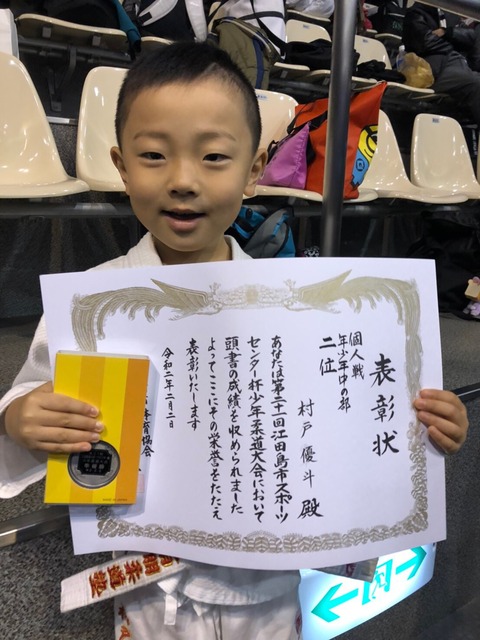 表彰状
個人戦
年少年中の部
二位
村戸優斗殿
あなたは第二十一回江田島市スポーツ
センター杯少年柔道大会において
頭書の成績を収められました
よってここにその栄誉をたたえ
表彰いたします
令和二年二月二日
育協会